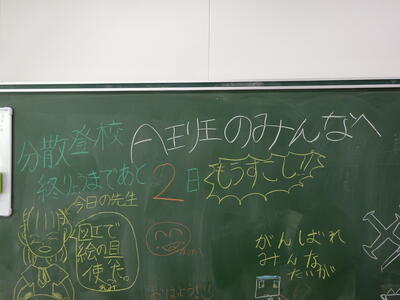 A班のみんなへ
分散登校
終りょうまであと
2日
もうすこし!!
今日の先生
図工で
絵の具
使った。
がんばれ
みんな
おはよう!!